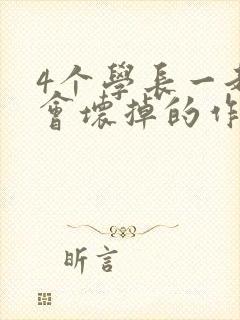 4个學長一
會壞掉的作
昕言